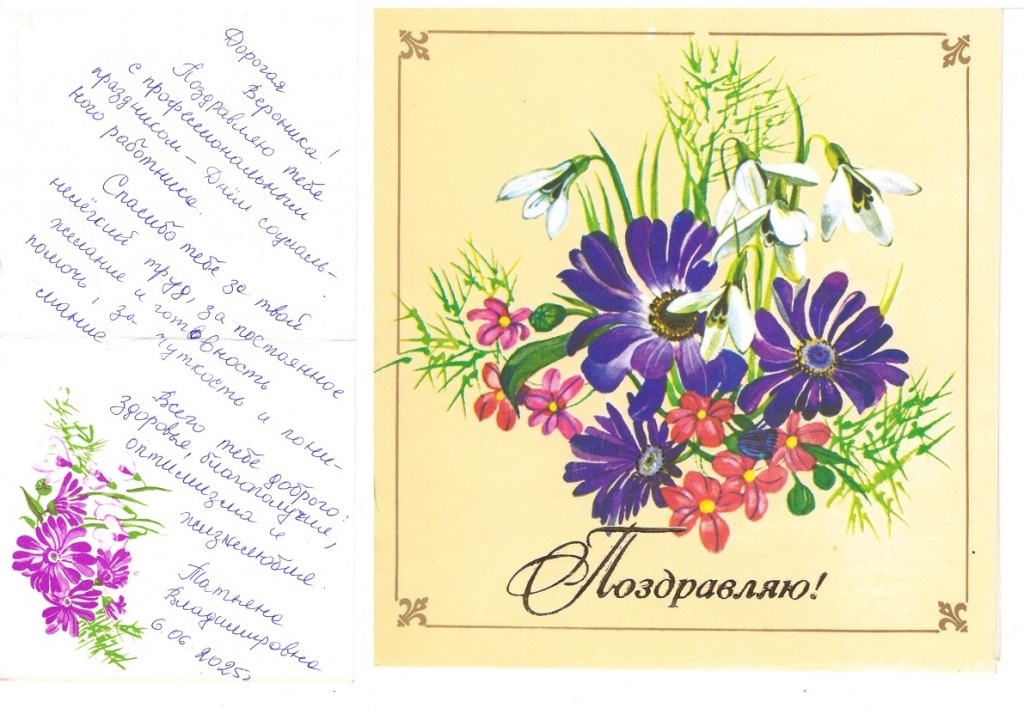 Дорогая
Вероника!
Поздравляю тебя
с профессиональным
праздником – Днём социаль-
ного работника.
Спасибо тебе за твой
нелёгкий труд, за постоянное
желание и готовность
помочь, за чуткость и пони-
мание
Всего тебе доброго:
здоровье, благополучия,
оптимизма и
жизнелюбия.
Татьяна
Владимировна
6.06.2025г
Поздравляю!